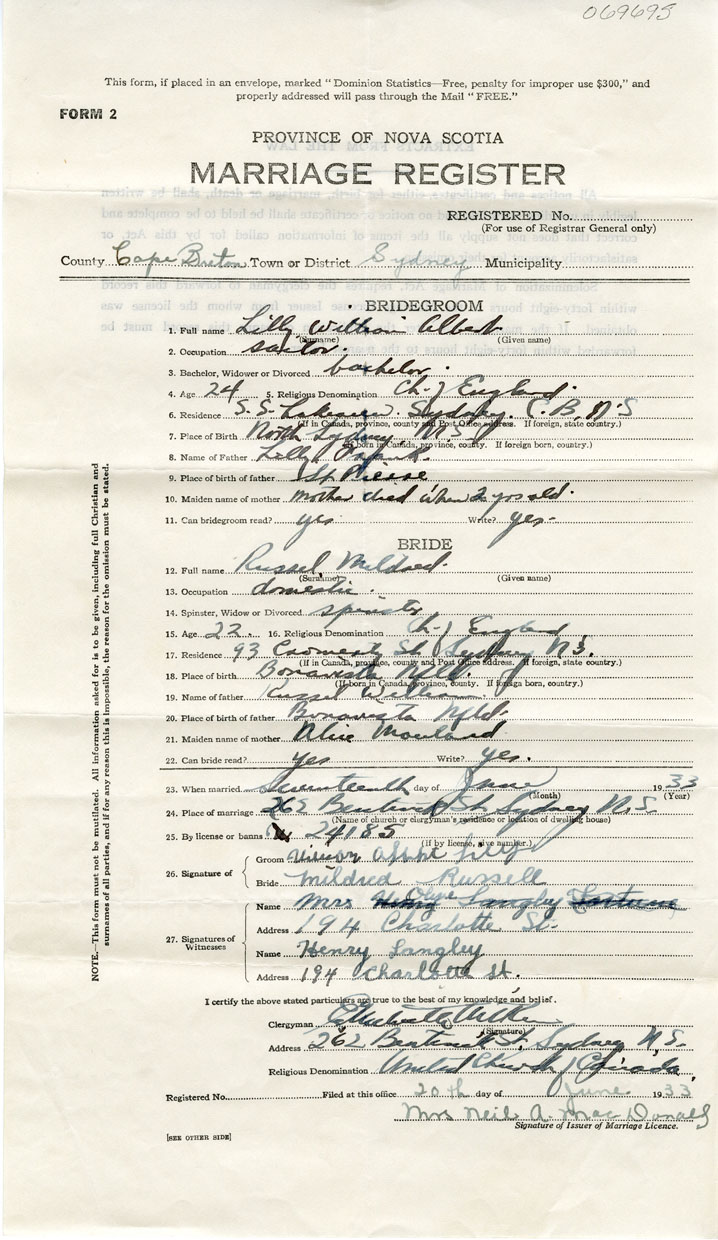 069695
This form, if placed in an envelope, marked "Dominion Statistics—Free, penalty for improper use $300," and
properly addressed will pass through the Mail "FREE."
FORM 2
PROVINCE OF NOVA SCOTIA
MARRIAGE REGISTER
REGISTERED No.
(For use of Registrar General only)
County Cape Breton Town or District Sydney Municipality
BRIDEGROOM
1. Full name Lilly William Albert
(Surname) (Given name)
2. Occupation sailor.
3. Bachelor, Widower or Divorced bachelor.
4. Age 24 5. Religious Denomination Ch. of England.
6. Residence S.S. Sydney, C.B., N.S
(If in Canada, province, county and Post Office address. If foreign, state country.)
7. Place of Birth North Sydney, N.S.
(If born in Canada, province, county. If foreign born, country.)
8. Name of Father Lilly Frank.
9. Place of birth of father St. Pierre
10. Maiden name of mother mother died when 2 yrs old.
11. Can bridegroom read? yes Write? yes.
BRIDE
12. Full name Russel Mildred.
(Surname) (Given name)
13. Occupation domestic.
14. Spinster, Widow or Divorced spinster
15. Age 22. 16. Religious Denomination Ch. of England
17. Residence 93 St. Sydney N.S.
(If in Canada, province, county and Post Office address. If foreign, state country.)
18. Place of birth Bonavista Nfld.
(If born in Canada, province, county. If foreign born, country.)
19. Name of father Russel William.
20. Place of birth of father Bonavista Nfld.
21. Maiden name of mother Alice Mouland
22. Can bride read? yes Write? yes.
23. When married Seventeenth day of June 1933
(Month) (Year)
24. Place of marriage 262 Bentinck St. Sydney N.S.
(Name of church or clergyman's residence or location of dwelling house)
25. By license or banns 24185
(If by license, give number.)
26. Signature of
Groom William Albert Lilly
Bride Mildred Russell
27. Signatures of Witnesses
Name Mrs Langley
Address 194 Charlotte St.
Name Henry Langley
Address 194 Charlotte St.
I certify the above stated particulars are true to the best of my knowledge and belief.
Clergyman
(Signature)
Address 262 Bentinck St. Sydney N.S.
Religious Denomination United Church of Canada
Registered No. Filed at this office 20th day of June 1933
Mrs Neil A. MacDonald
Signature of Issuer of Marriage Licence.
[SEE OTHER SIDE]
NOTE.—This form must not be mutilated. All information asked for is to be given, including full Christian and
surnames of all parties, and if for any reason this is impossible, the reason for the omission must be stated.